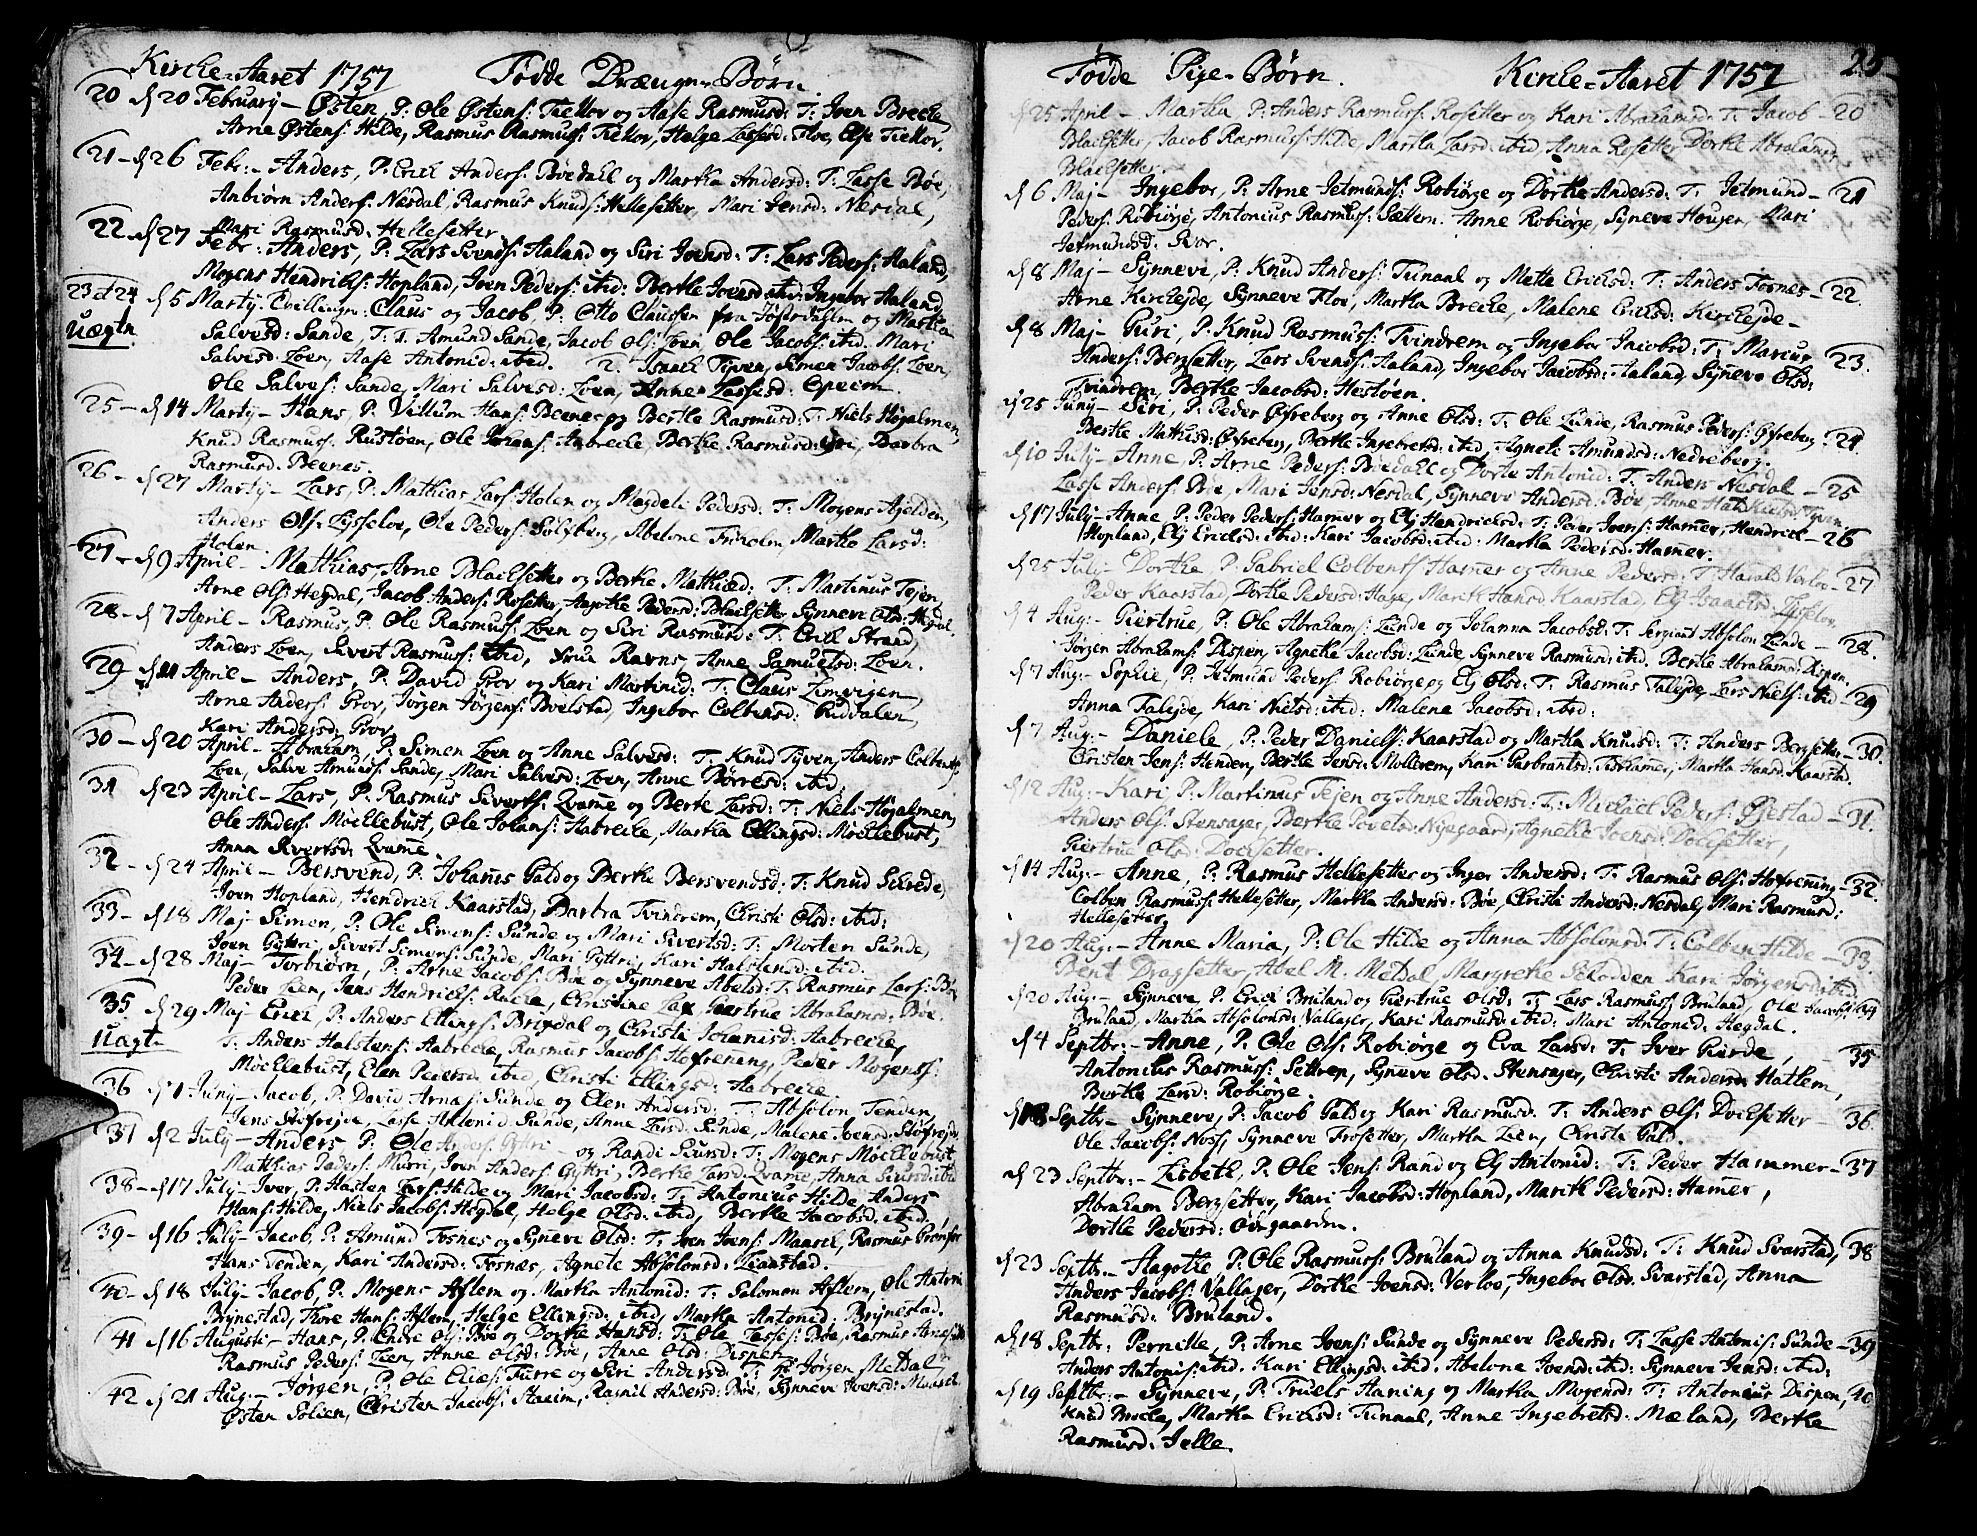 Kirche-Aaret 1757 Fødde Drænge-Børn.
20 d 20 February - Østen, P: Ole Østens: Tiekor og Aase Rasmusd: T: Joen Breche,
Arne Østens: Hilde, Rasmus Rasmuss: Tiekor, Helge Lassesd: Floe, Else Tiekor.
21 - d 26 Febr: - Anders, P: Erich Anders: Bøedahl og Martha Andersd: T: Lasse Bøe,
Anbiørn Anders: Nesdal, Rasmus Knuds: Hellesetter, Mari Jensd: Nesdal,
Mari Rasmusd: Hellesetter
22 - d 27 Febr: Anders, P: Lars Svends: Aaland og Siri Joensd: T: Lars Peders: Aaland,
Mogens Hendrichs: Hopland, Joen Peders: ibid: Berthe Joensd ibid: Ingebor Aaland,
23 et 24 d 5 Marty. Tvillinger. Claus og Jacob, P: Otto Claussen fra og Martha
uægte Salvesd: Sande, T: 1. Amund Sande, Jacob Ols: Loen, Ole Jacobs: ibid. Mari
Salvesd. Loen, Aase Antonid: ibid. 2. Isaach Tiven, Simen Jacobs: Loen,
Ole Salves: Sande, Mari Salvesd: Loen, Anne Lassesd:
25 - d 14 Marty - Hans, P: Villum Hans: Beenes og Berthe Rasmusd: T: Niels Høyalmen,
Knud Rasmuss: Rustøen, Ole Johans: Aabreche, Berthe Rasmusd: Barbra
Rasmusd. Beenes.
26 - d 27 Marty - Lars, P: Mathias Lars: Holen og Magdeli Pedersd: T: Mogens
Anders Ols: Ole Peders: Sølfberg, Abelone Martha Larsd:
Holen.
27 - d 9 April - Mathias, Arne Blachsetter og Berthe Mathiæd: T: Martinus Tejen,
Arne Ols: Hegdal, Jacob Anders: Rosetter, Aagothe Pedersd: Blachsetter, Synneve Olsd: Hegdal.
28 - d 7 April - Rasmus, P: Ole Rasmuss: Loen og Siri Rasmusd: T: Erich Strand,
Anders Loen, Sivert Rasmuss: ibid, Frue Ravns, Anne Samuelsd: Loen.
29 d 11 April - Anders, P: David Grov og Kari Martinid: T: Claus Limvigen
Arne Anders: Grov, Jørgen Jørgens: Bøelstad, Ingebor Colbensd:
Kari Andersd: Grov.
30 - d 20 April - Abraham, P: Simen Loen og Anne Salvesd: T: Knud Tyven, Anders
Loen, Salve Amunds: Sande, Mari Salvesd: Loen, Anne Børresd: ibid.
31 d 23 April - Lars, P: Rasmus Siverts: Qvame og Berte Larsd: T: Niels Høyalmen,
Ole Anders: Møchlebust, Ole Johans: Aabreche, Martha Ellingsd: Møchlebust,
Anna Sivertsd: Qvame.
32 - d 24 April - Bersvend, P: Johanes Gald og Berthe Bersvendsd: T: Knud
Joen Hopland, Hendrich Kaarstad, Barbra Tvindrem, Christi Olsd: ibid:
33 - d 18 Maj Simen, P: Ole Simens: Sunde og Mari Sivertsd: T: Morten Sunde,
Joen Gyttri, Sivert Simens: Sunde, Mari Gyttri, Kari Halstensd: ibid.
34 - d 28 Maj - Torbiørn, P: Arne Jacobs: Bøe og Synneve Abelsd: T: Rasmus Lars: Bøe
Peder Leen, Jens Hendrichs: Christine Giertrue Abrahamsd: Bøe.
35 d 29 Maj Erich, P: Anders Ellings: Brixdal og Christi Johanisd: Aabreche,
Uægte T: Anders Halstens: Aabreche, Rasmus Jacobs: Hofrening, Peder Mogenss:
Møchlebust, Elen Pedersd: ibid, Christi Ellingsd: Aabreche
36 d 1 Juny - Jacob, P: David Arnæs: Sunde og Elen Andersd: T: Absolon Tenden,
Jens Støfrejde, Lasse Antonid Sunde, Anne Larsd: Sunde, Malene Joensd: Støfrejde
37 d 2 July - Anders P: Ole Anders: Gyttri - og Randi Siursd: T: Mogens Møchlebust,
Matthias Peders: Muri, Joen Anders: Gyttri, Berthe Larsd: Qvame, Anna Siursd: ibid
38 - d 17 July - Iver, P: Hasten Lars: Hilde og Mari Jacobsd: T: Antonius Hilde, Anders
Hans: Hilde, Niels Jacobs: Hegdal, Helge Olsd: ibid, Berthe Jacobsd. ibid.
39 - d 16 July - Jacob, P: Amund Fosnes og Synneve Olsd: T: Joen Joens: Maarch, Rasmus
Hans Tenden, Kari Andersd: Fosnæs, Agnete Absolonsd:
40 - d 18 July - Jacob, P: Mogens Aflem og Martha Antonid: T: Salomon Aflem, Ole Antoni
Brynestad, Thore Hans: Aflem, Helge Ellingsd: ibid, Martha Antonid, Brynestad.
41 d 16 Augusti - Hans, P: Endre Ols: Bøe og Dorthe Hansd: T: Ole Lasses: Bøe, Rasmus
Rasmus Peders: Leen, Anne Olsd: Bøe, Anne Olsd: Dispen.
42 d 21 Aug: - Jørgen, P: Ole Elies: Furre og Siri Andersd: T: Jørgen Metdal
Østen Solien, Christen Jacobs: Staim, Andersd: Bøe, Synneve Joensd: Maarch.
Fødde Pige-Børn. Kirche-Aaret 1757 25
d 25 April - Martha P: Anders Rasmuss: Rosetter og Kari Abrahamsd: T: Jacob - 20
Blachsetter, Jacob Rasmuss: Hilde, Martha Larsd: ibid, Anna Rosetter, Dorthe Abrahamsd:
Blachsetter.
d 6 Maj - Ingebor, P: Arne Jetmunds: Robiørge og Dorthe Andersd: T: Jetmund - 21
Peders: Robiørge, Antonius Rasmuss: Sættem: Anne Robiørge, Synneve Houger, Mari
Jetmundsd: Svor.
d 8 Maj - Synneve, P: Knud Anders: Tunaal og Mette Erichsd: T: Anders Fosnes - 22.
Arne Kirchejde, Synneve Floe, Martha Breche, Malene Erichsd: Kirchejde -
d 8 Maj - Guri, P: Knud Rasmuss: Tvindrem og Ingebor Jacobsd: T: Marius 23.
Anders: Bergsetter, Lars Svends: Aaland, Ingebor Jacobsd: Aaland, Synneve Olsd:
Tvindrem, Berthe Jacobsd: Hestøen.
d 25 Juny - Siri, P: Peder Øfreberg og Anne Olsd: T: Ole Lunde, Rasmus Peders: Øfreberg 24
Berthe Mathisd: Øfreberg, Berthe Ingebretsd: ibid, Agnete Amundsd: Nedreberg.
d 10 July - Anne, P: Arne Peders: Bøedahl og Dorte Antonid: T: Anders Nesdal - 25
Lasse Anders: Bøe, Mari Jensd: Nesdal, Synneve Andersd. Bøe, Anne Tyven
d 17 July - Anne P: Peder Peders: Hamer og Elj Hendrichsd: T: Peder Joens: Hamer, Hendrich - 26
Hopland, Elj Erichsd: ibid: Kari Jacobsd: ibid: Martha Pedersd: Hamer.
d 25 July - Dorthe, P: Gabriel Colbents: Hamer og Anne Pedersd: T: Harald Verloe - 27
Peder Kaarstad, Dorthe Pedersd: Hage, Marith Hansd Kaarstad, Elj Isaachsd:
d 4 Aug: - Giertrue, P: Ole Abrahams: Lunde og Johanna Jacobsd: T: Sergiant Absolon Lunde - 28.
Jørgen Abrahams: Dispen, Agnethe Jacobsd: Lunde Synneve Rasmusd: ibid. Berthe Abrahamsd: Dispen.
d 7 Aug: - Sophie, P: Jetmund Peders: Robiørge og Elj Olsd: T: Rasmus Falejde, Lars Niels: ibid - 29
Anna Falejde, Kari Nielsd: ibid: Malene Jacobsd: ibid:
d 7 Aug: - Daniele, P: Peder Daniels: Kaarstad og Martha Knudsd: T: Anders Bergsetter - 30.
Christen Jens: Henden, Berthe Jensd: Mollrem, Kari Martha Hansd: Kaarstad.
d 12 Aug: - Kari P: Martinus Tejen og Anne Andersd: T: Michael Peders: Gjestad - 31.
Anders Ols: Stensager, Berthe Nygaard, Agnethe Joensd: Dochsetter,
Giertrue Olsd: Dochsetter.
d 14 Aug: - Anne, P: Rasmus Hellesetter og Inger Andersd: T: Rasmus Ols: Hofrening - 32.
Colben Rasmuss: Hellesetter, Martha Andersd: Bøe, Christi Andersd: Nesdal, Mari Rasmusd:
Hellesetter.
d 20 Aug: - Anne Maria, P: Ole Hilde og Anna Absolonsd: T: Colben Hilde - 33.
Bent Dragsetter, Abel M. Metdal Margrethe Kari Jørgensd: ibid
d 20 Aug: - Synneve, P: Erich Bruland og Giertrue Olsd: T: Lars Rasmuss: Bruland, Ole Jacobs: 34
Bruland, Martha Absolonsd: Vallager, Kari Rasmusd: ibid: Mari Antonid: Hegdal.
d 4 Septbr: - Anne, P: Ole Ols: Robiørge og Eva Larsd: T: Iver Giørde, - 35
Antonius Rasmuss: Settem, Synneve Olsd. Stensager, Christi Andersd: Hatlem,
Berthe Larsd: Robiørge
d 18 Septbr - Synneve, P: Jacob Gald og Kari Rasmusd. T: Anders Ols: Dochsetter - 36.
Ole Jacobs: Noss, Synneve Frosetter, Martha Leen, Christi Gald.
d 23 Septbr: - Lisbeth, P: Ole Jens: Rand og Elj Antonid: T: Peder Hammer - 37
Abraham Bergsetter, Kari Jacobsd: Hopland, Marith Pedersd: Hamer,
Dorthe Pedersd: Øvregaarden.
d 23 Septbr - Aagothe P: Ole Rasmuss: Bruland og Anna Knudsd: T: Knud Svarstad, 38
Anders Jacobs: Vallager, Dorthe Joensd: Verloe, Ingebor Olsd. Svarstad, Anna
Rasmusd: Bruland.
d 18 Septbr: Pernille, P: Arne Joens: Sunde og Synneve Pedersd: T: Lasse Antonis: Sunde - 39
Anders Antonis: ibid. Kari Ellingsd: ibid. Abelone Joensd: ibid: Synneve Jensd: ibid:
d 19 Septbr: - Synneve, P: Truels Haning og Martha Mogensd: T: Antonius Dispen, 40
Knud Martha Erichsd: Tunaal, Anne Ingebretsd. Mæland, Berthe
Rasmusd: Jelle.